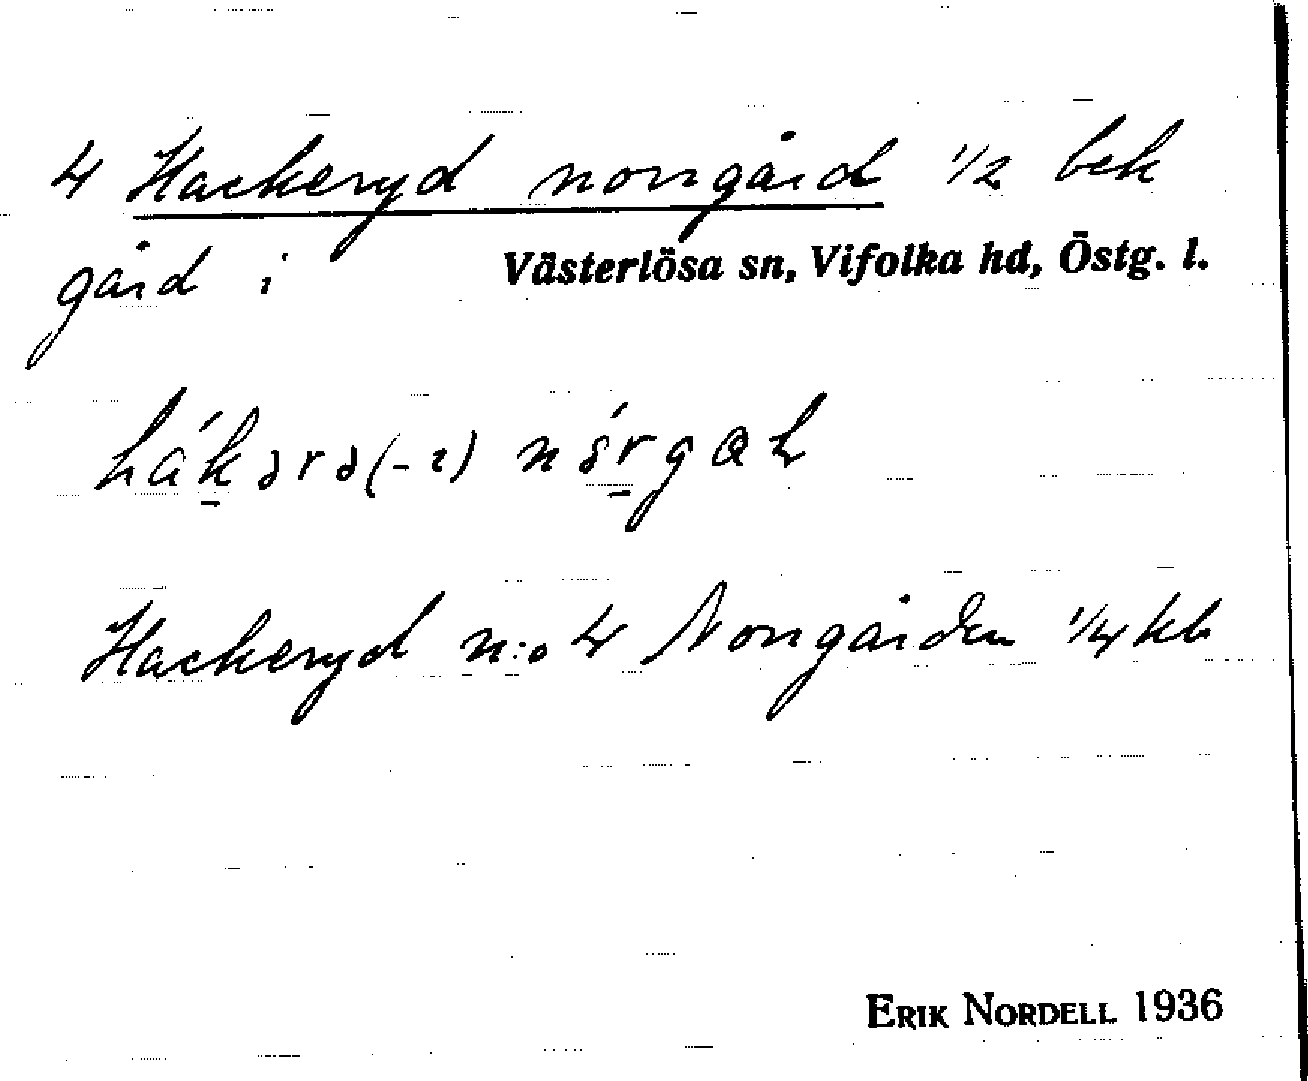 4 Hackeryd norrgård 1/2 bek
gård i Västerlösa sn, Vifolka hd, Östg. l.
Hackeryd n:o 4 Norrgården 1/4 kb
ERIK NORDELL 1936